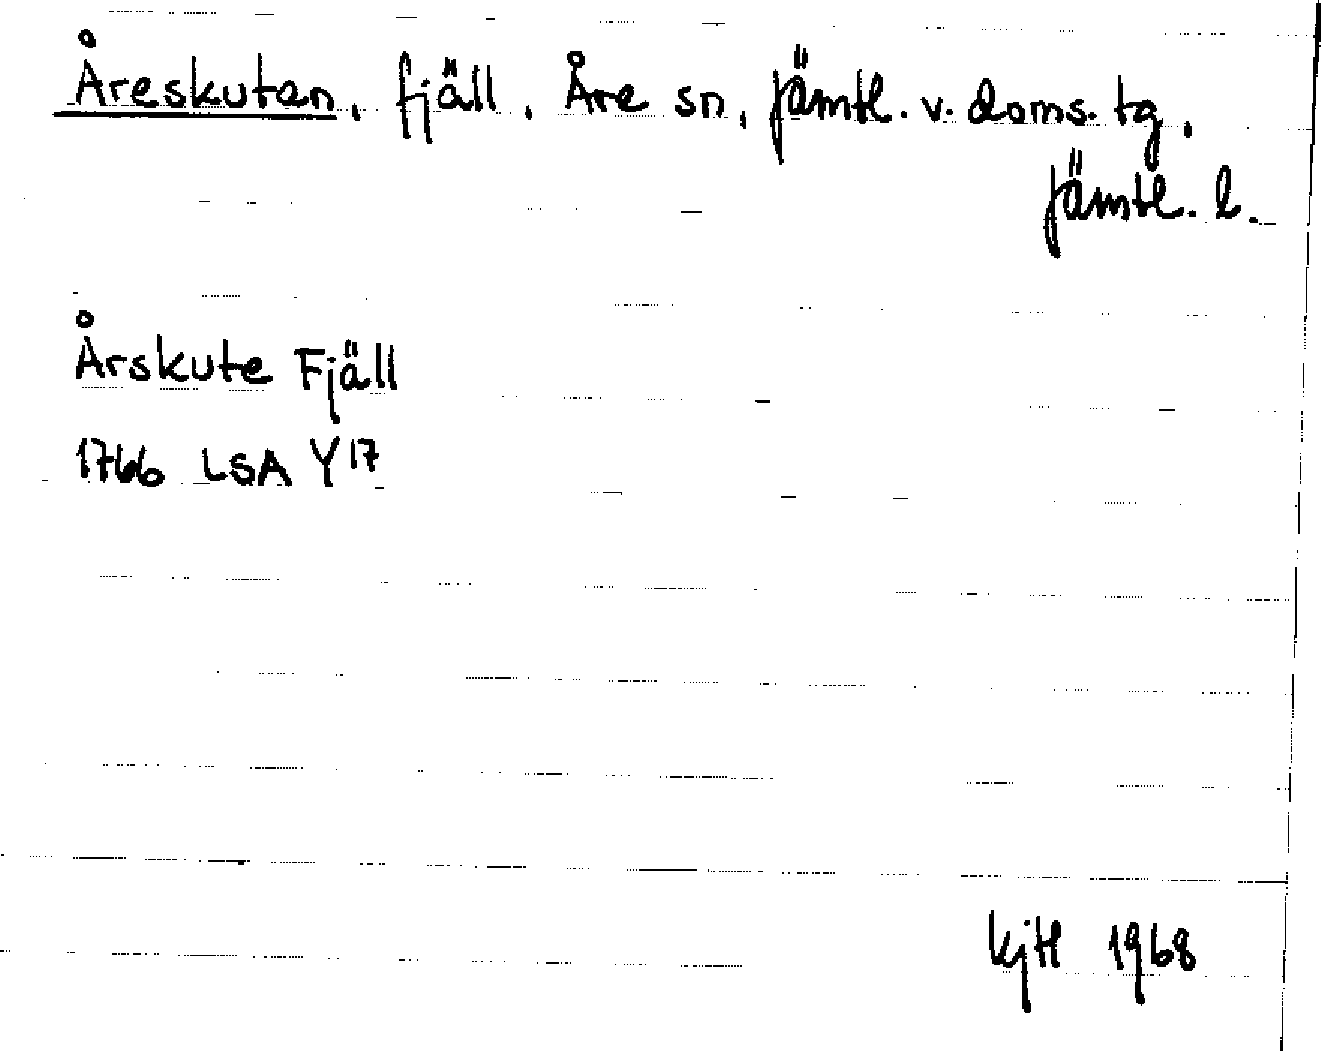 Åreskutan, fjäll, Åre sn, Jämtl. v. doms. tg,
Jämtl. l.
Årskute Fjäll
1766 LSA Y17
KjH 1968